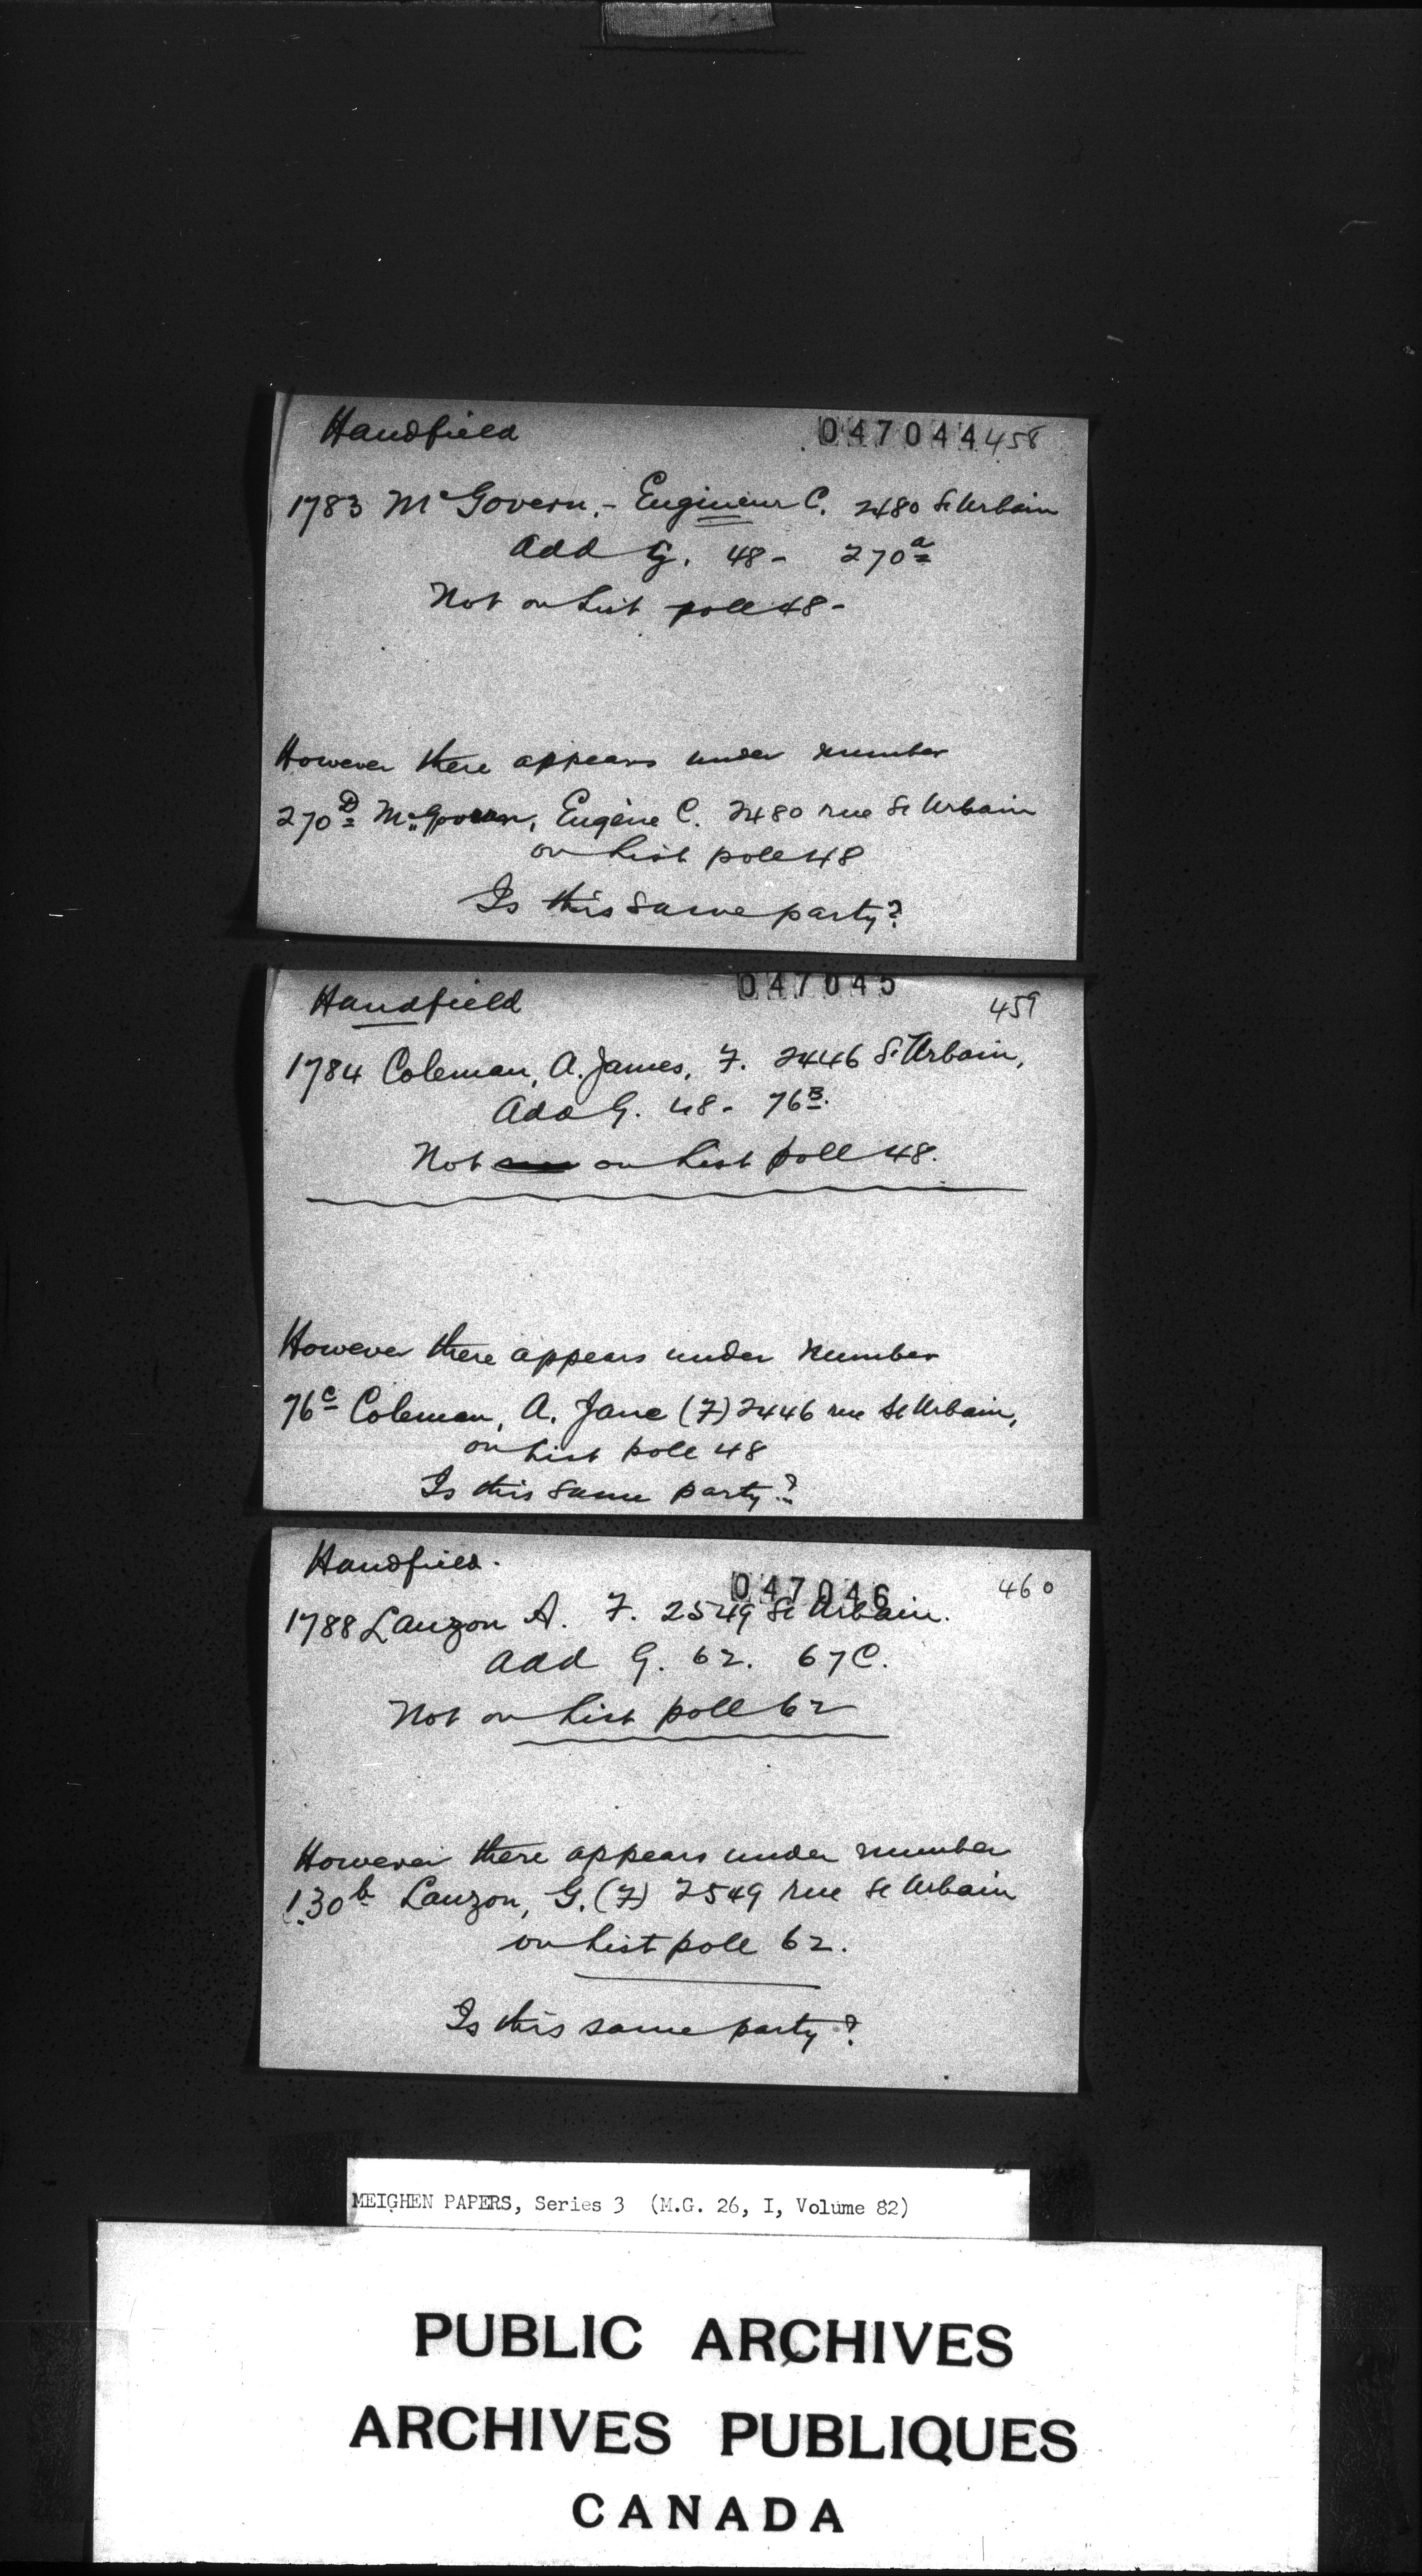 Handfield 047044 458
1783 McGovern.- Engineur C. 2480 St Urbain
Add G. 48- 270a
Not on list poll 48-
However there appears under number
270D McGovern, Eugène C. 2480 rue St Urbain
on list poll 48
Is this same party?
Handfield 047045 459
1784 Coleman, A. James, F. 2446 St Urbain,
Add G. 48- 76B.
Not on list poll 48.
However there appears under number
76c Coleman, A. Jane (F) 2446 rue St Urbain,
on list poll 48
Is this same party?
Handfield. 047046 460
1788 Lauzon A. F. 2549 St Urbain.
Add G. 62. 67C.
Not on list poll 62
However there appears under number
130b Lauzon, G. (F) 2549 rue St Urbain
on list poll 62.
Is this same party?
MEIGHEN PAPERS, Series 3 (M.G. 26, I, Volume 82)
PUBLIC ARCHIVES
ARCHIVES PUBLIQUES
CANADA